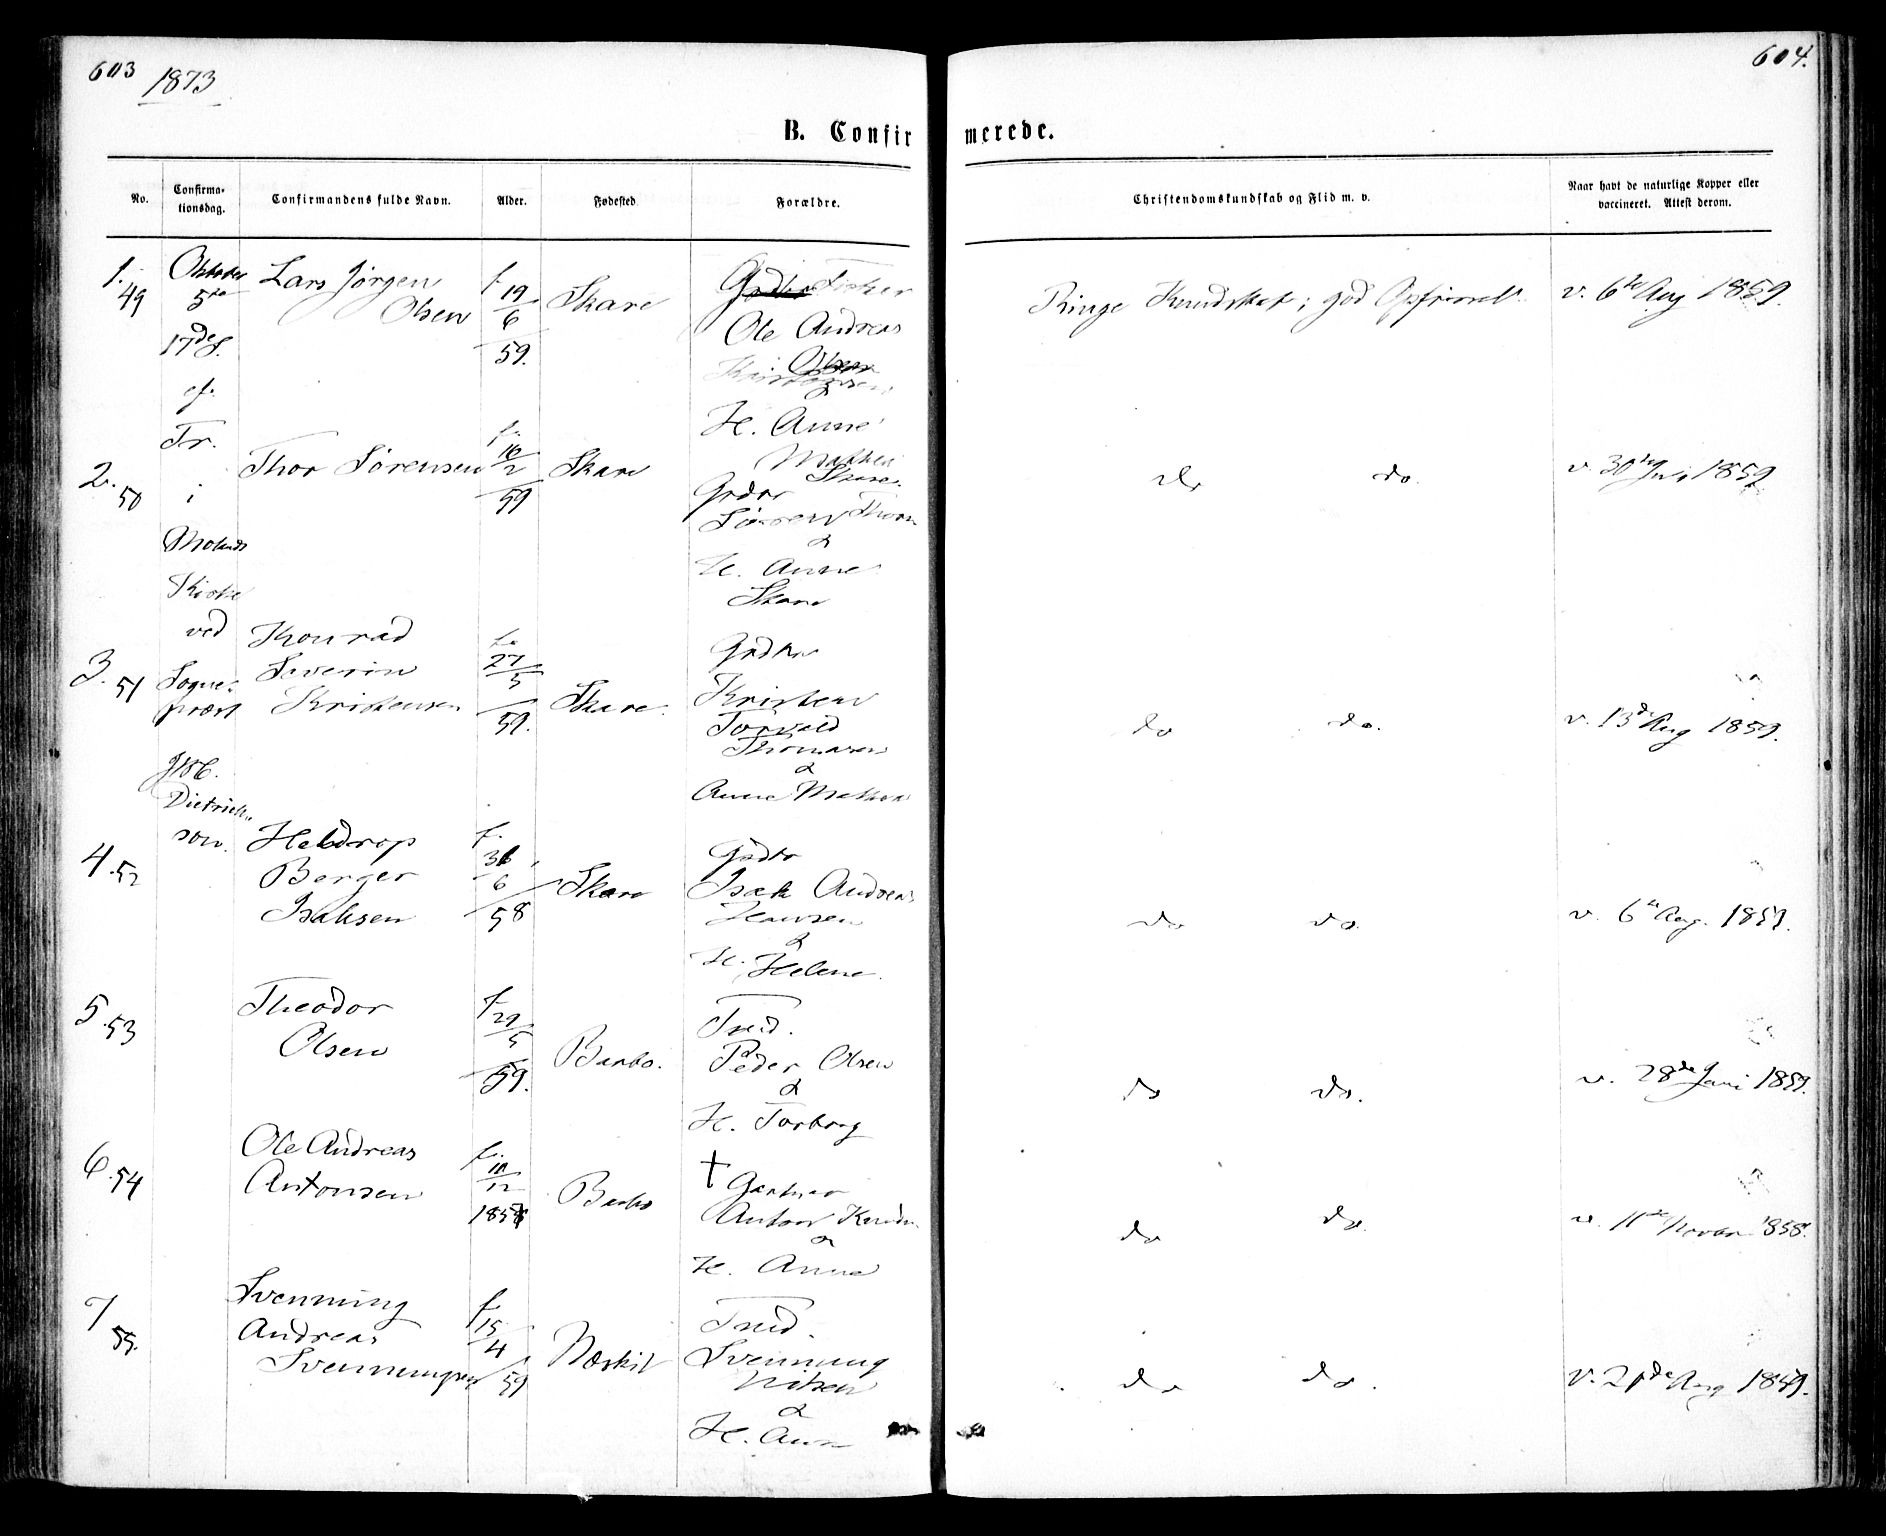 603
1873
604.
B. Confirmerede.
No.
Confirmationsdag.
Confirmandens fulde Navn.
Alder.
Fødested
Forældre.
Christendomskundskab og Flid m. v.
Naar havt de naturlige Kopper eller
vaccineret. Attest derom.
1.
49
Oktober
5te
17de S.
ef.
Tr.
i
Molands
Kirke
ved
Sogne-
præst
Dietrich-
son.
Lars Jørgen
Olsen
f. 19/6
59.
Skare
Grdbr Fisker
Ole Andreas
Olsen
H. Anne
Skare.
Ringe Kundskab; god Opførsel
v. 6te Aug 1859.
2.
50
Thor Sørensen
f. 16/2
59
Skare
Grdbr
Søren
&
H. Anne
Skare
do do.
v. 30te 1859
3.
51
Konrad
Severin
Kristensen
f. 27/5
59.
Skare.
Grdbr
Kristen
Torvald
Thomasen
&
Anne
do do.
v. 13de Aug 1859.
4.
52
Berger
Isaksen
f.
6
58
Skare
Grdbr
Isak Andreas
Hansen
&
H. Helene.
do do
v. 6te Aug. 1859.
5.
53
Theodor
Olsen
f. 29/5
59.
Barbo.
Tmd.
Peder Olsen
&
H. Torborg
do do.
v. 28de Juni 1859.
6.
54
Ole Andreas
Antonsen
f. 10/12
1858
Barbo
† Gartner
Anton
&
H. Anne
do do.
v. 11te Novbr 1858.
7
55.
Svenning
Andreas
Svenningsen
f. 15/4
59
Næskil
Tmd.
Svenning
Nilsen
&
H. Anne
do do.
v. 21de Aug 1859.